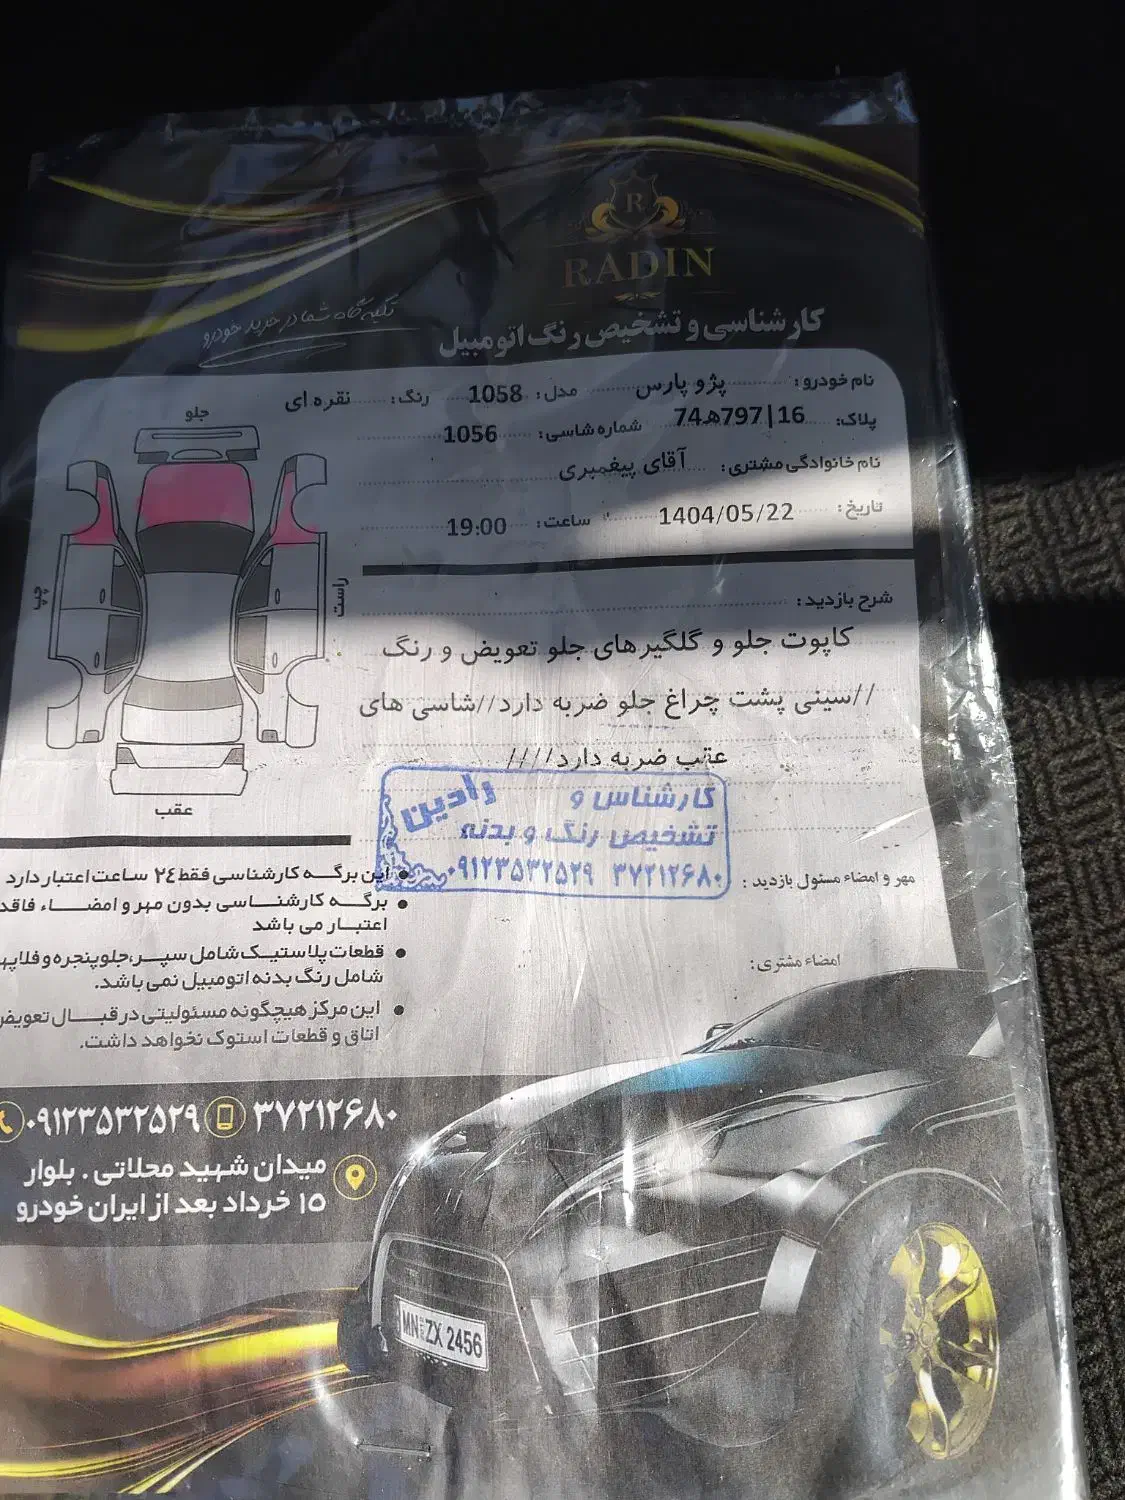 R
RADIN
تکیه گاه شما در خرید خودرو
کارشناسی و تشخیص رنگ اتومبیل
نام خودرو: پژو پارس مدل: 1058 رنگ: نقره ای
پلاک: 16|797ھ74 شماره شاسی: 1056
نام خانوادگی مشتری: آقای پیغمبری
تاریخ: 1404/05/22 ساعت: 19:00
جلو
چپ
راست
عقب
شرح بازدید:
کاپوت جلو و گلگیرهای جلو تعویض و رنگ
//سینی پشت چراغ جلو ضربه دارد//شاسی های
عقب ضربه دارد////
کارشناس و رادین
تشخیص رنگ و بدنه
۰۹۱۲۳۵۳۲۵۲۹ ۳۷۲۱۲۶۸۰
مهر و امضاء مسئول بازدید:
امضاء مشتری:
این برگه کارشناسی فقط ۲۴ ساعت اعتبار دارد
برگه کارشناسی بدون مهر و امضاء فاقد
اعتبار می باشد
قطعات پلاستیک شامل سپر،جلو پنجره و فلاپها
شامل رنگ بدنه اتومبیل نمی باشد.
این مرکز هیچگونه مسئولیتی در قبال تعویض
اتاق و قطعات استوک نخواهد داشت.
۳۷۲۱۲۶۸۰ ۰۹۱۲۳۵۳۲۵۲۹
میدان شهید محلاتی . بلوار
۱۵ خرداد بعد از ایران خودرو
MN ZX 2456